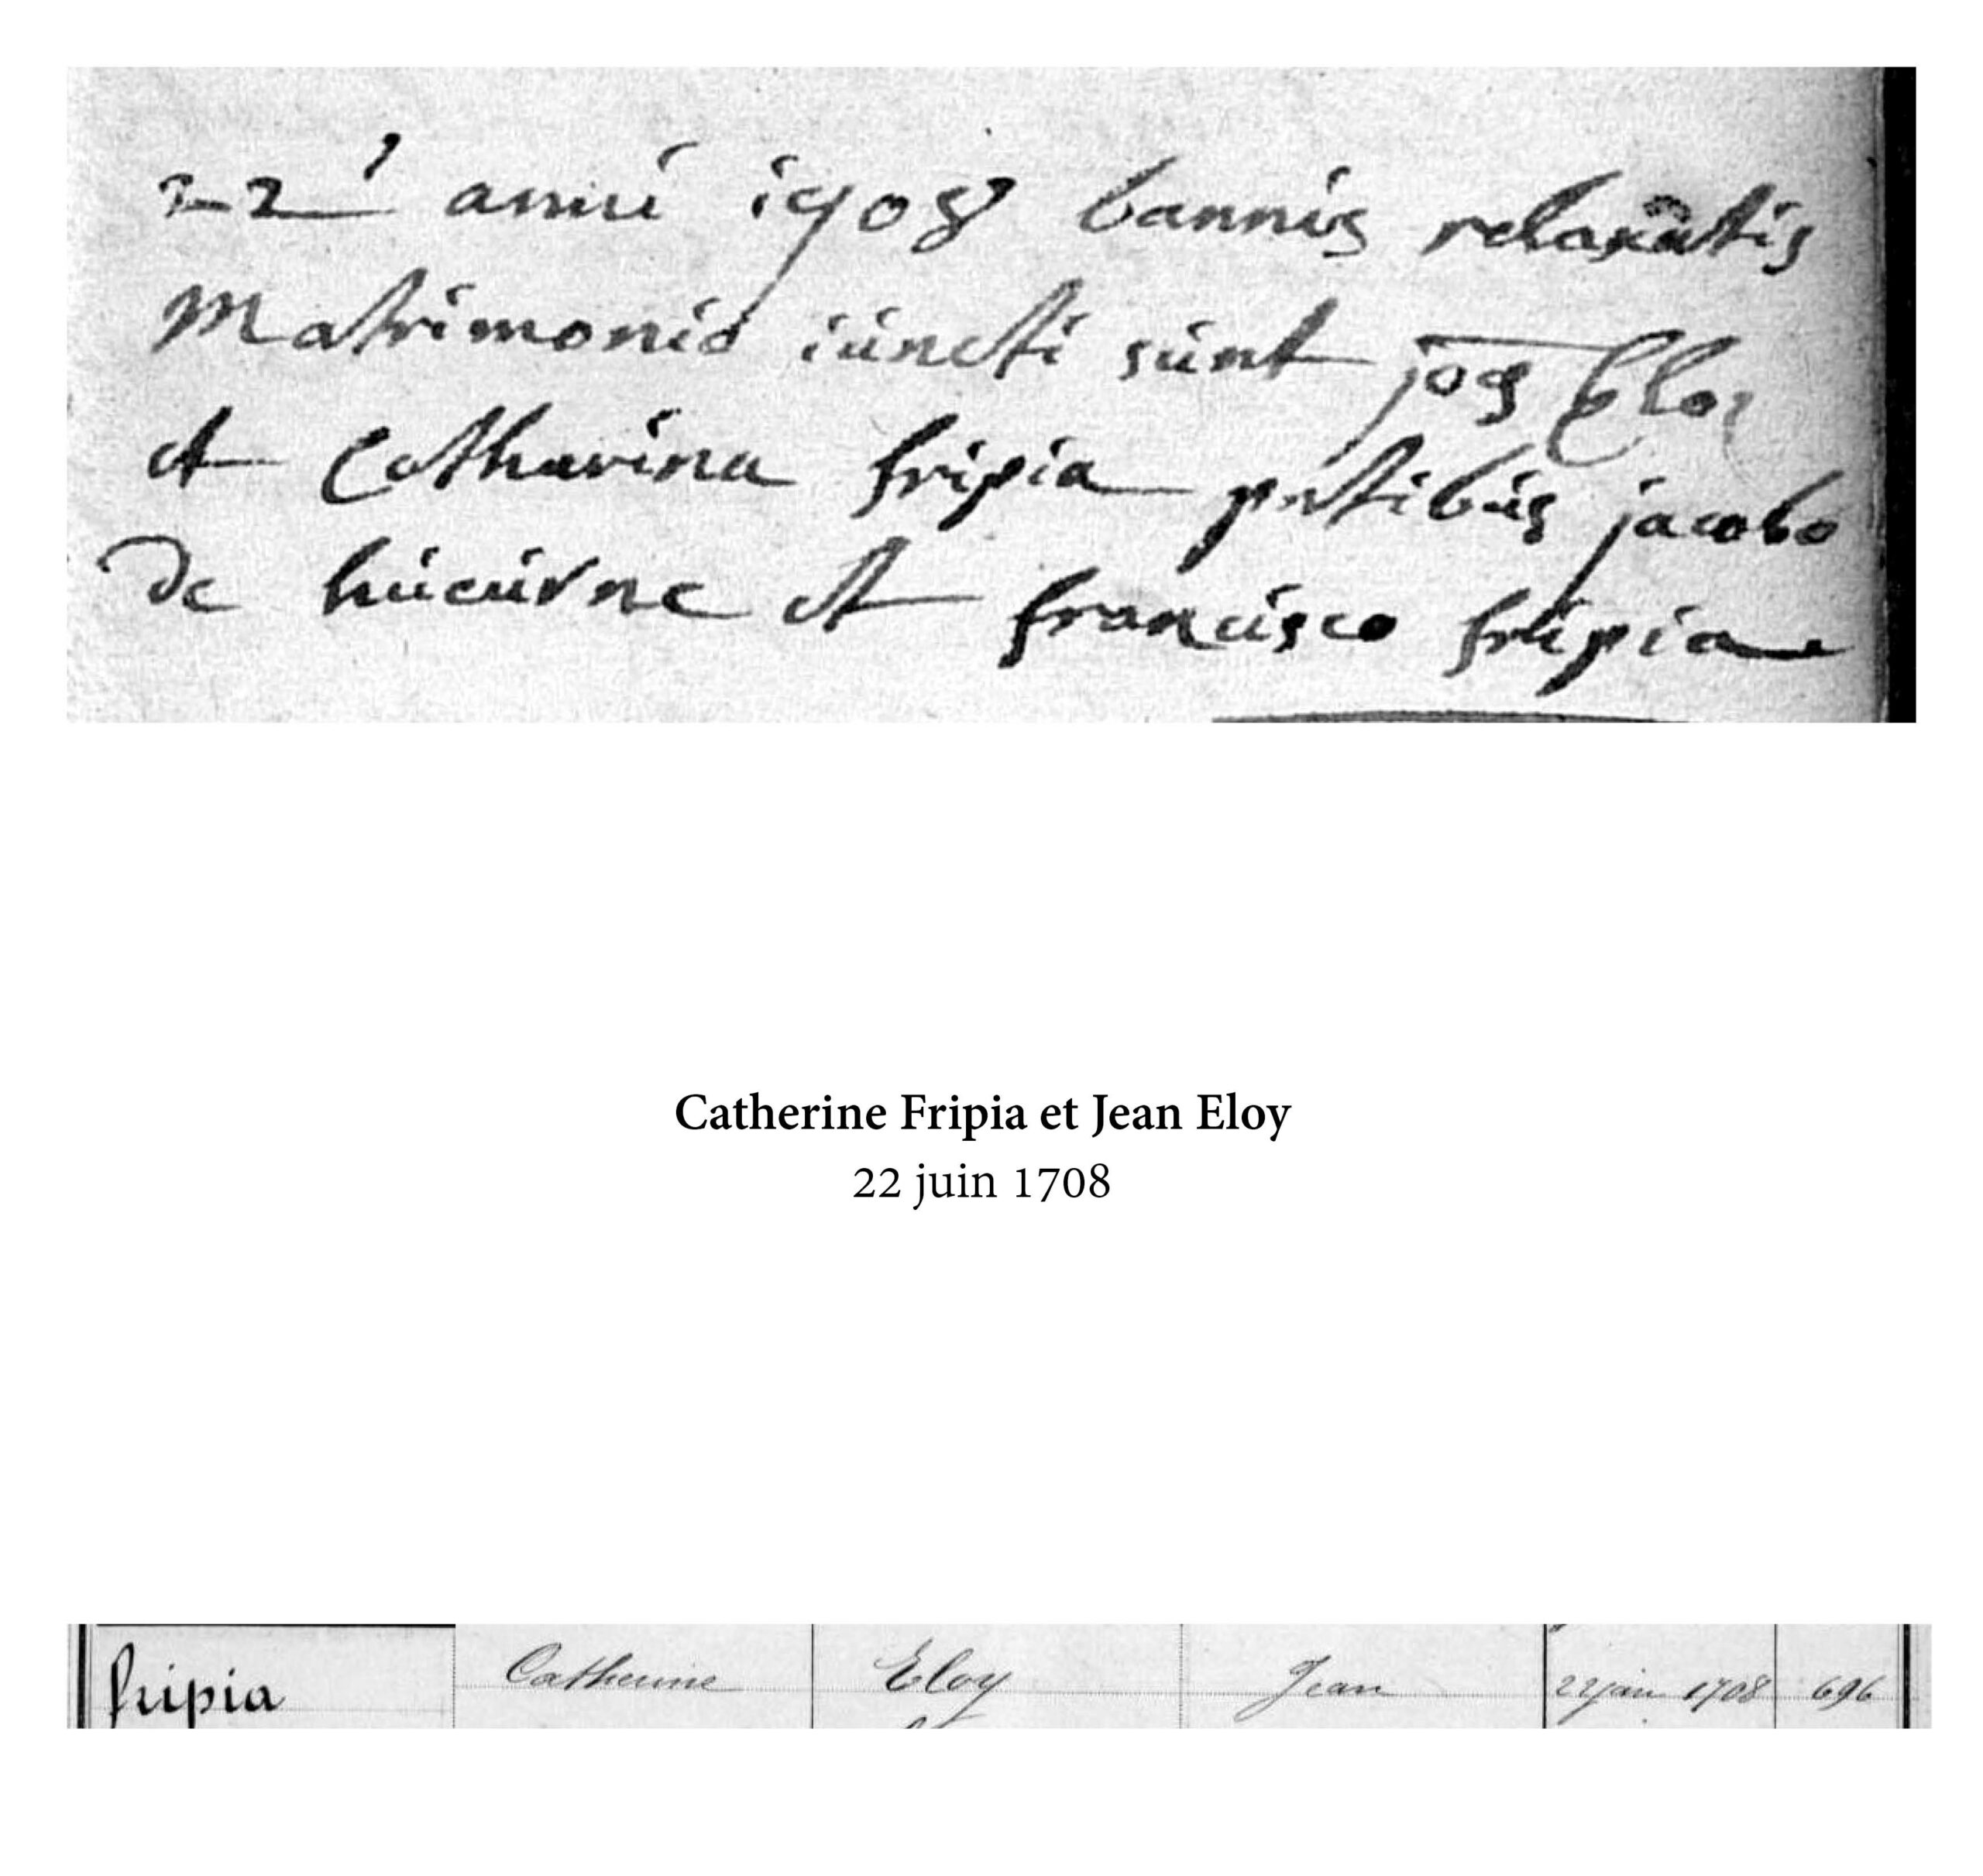 22 anni 1708 bannis relaxatis
Matrimonio iùncti sùnt joes Eloy
et Catharina fripia pntibùs jacobo
De hùcùrne et francisco fripia
Catherine Fripia et Jean Eloy
22 juin 1708
fripia Catherine Eloy Jean 22 juin 1708 696